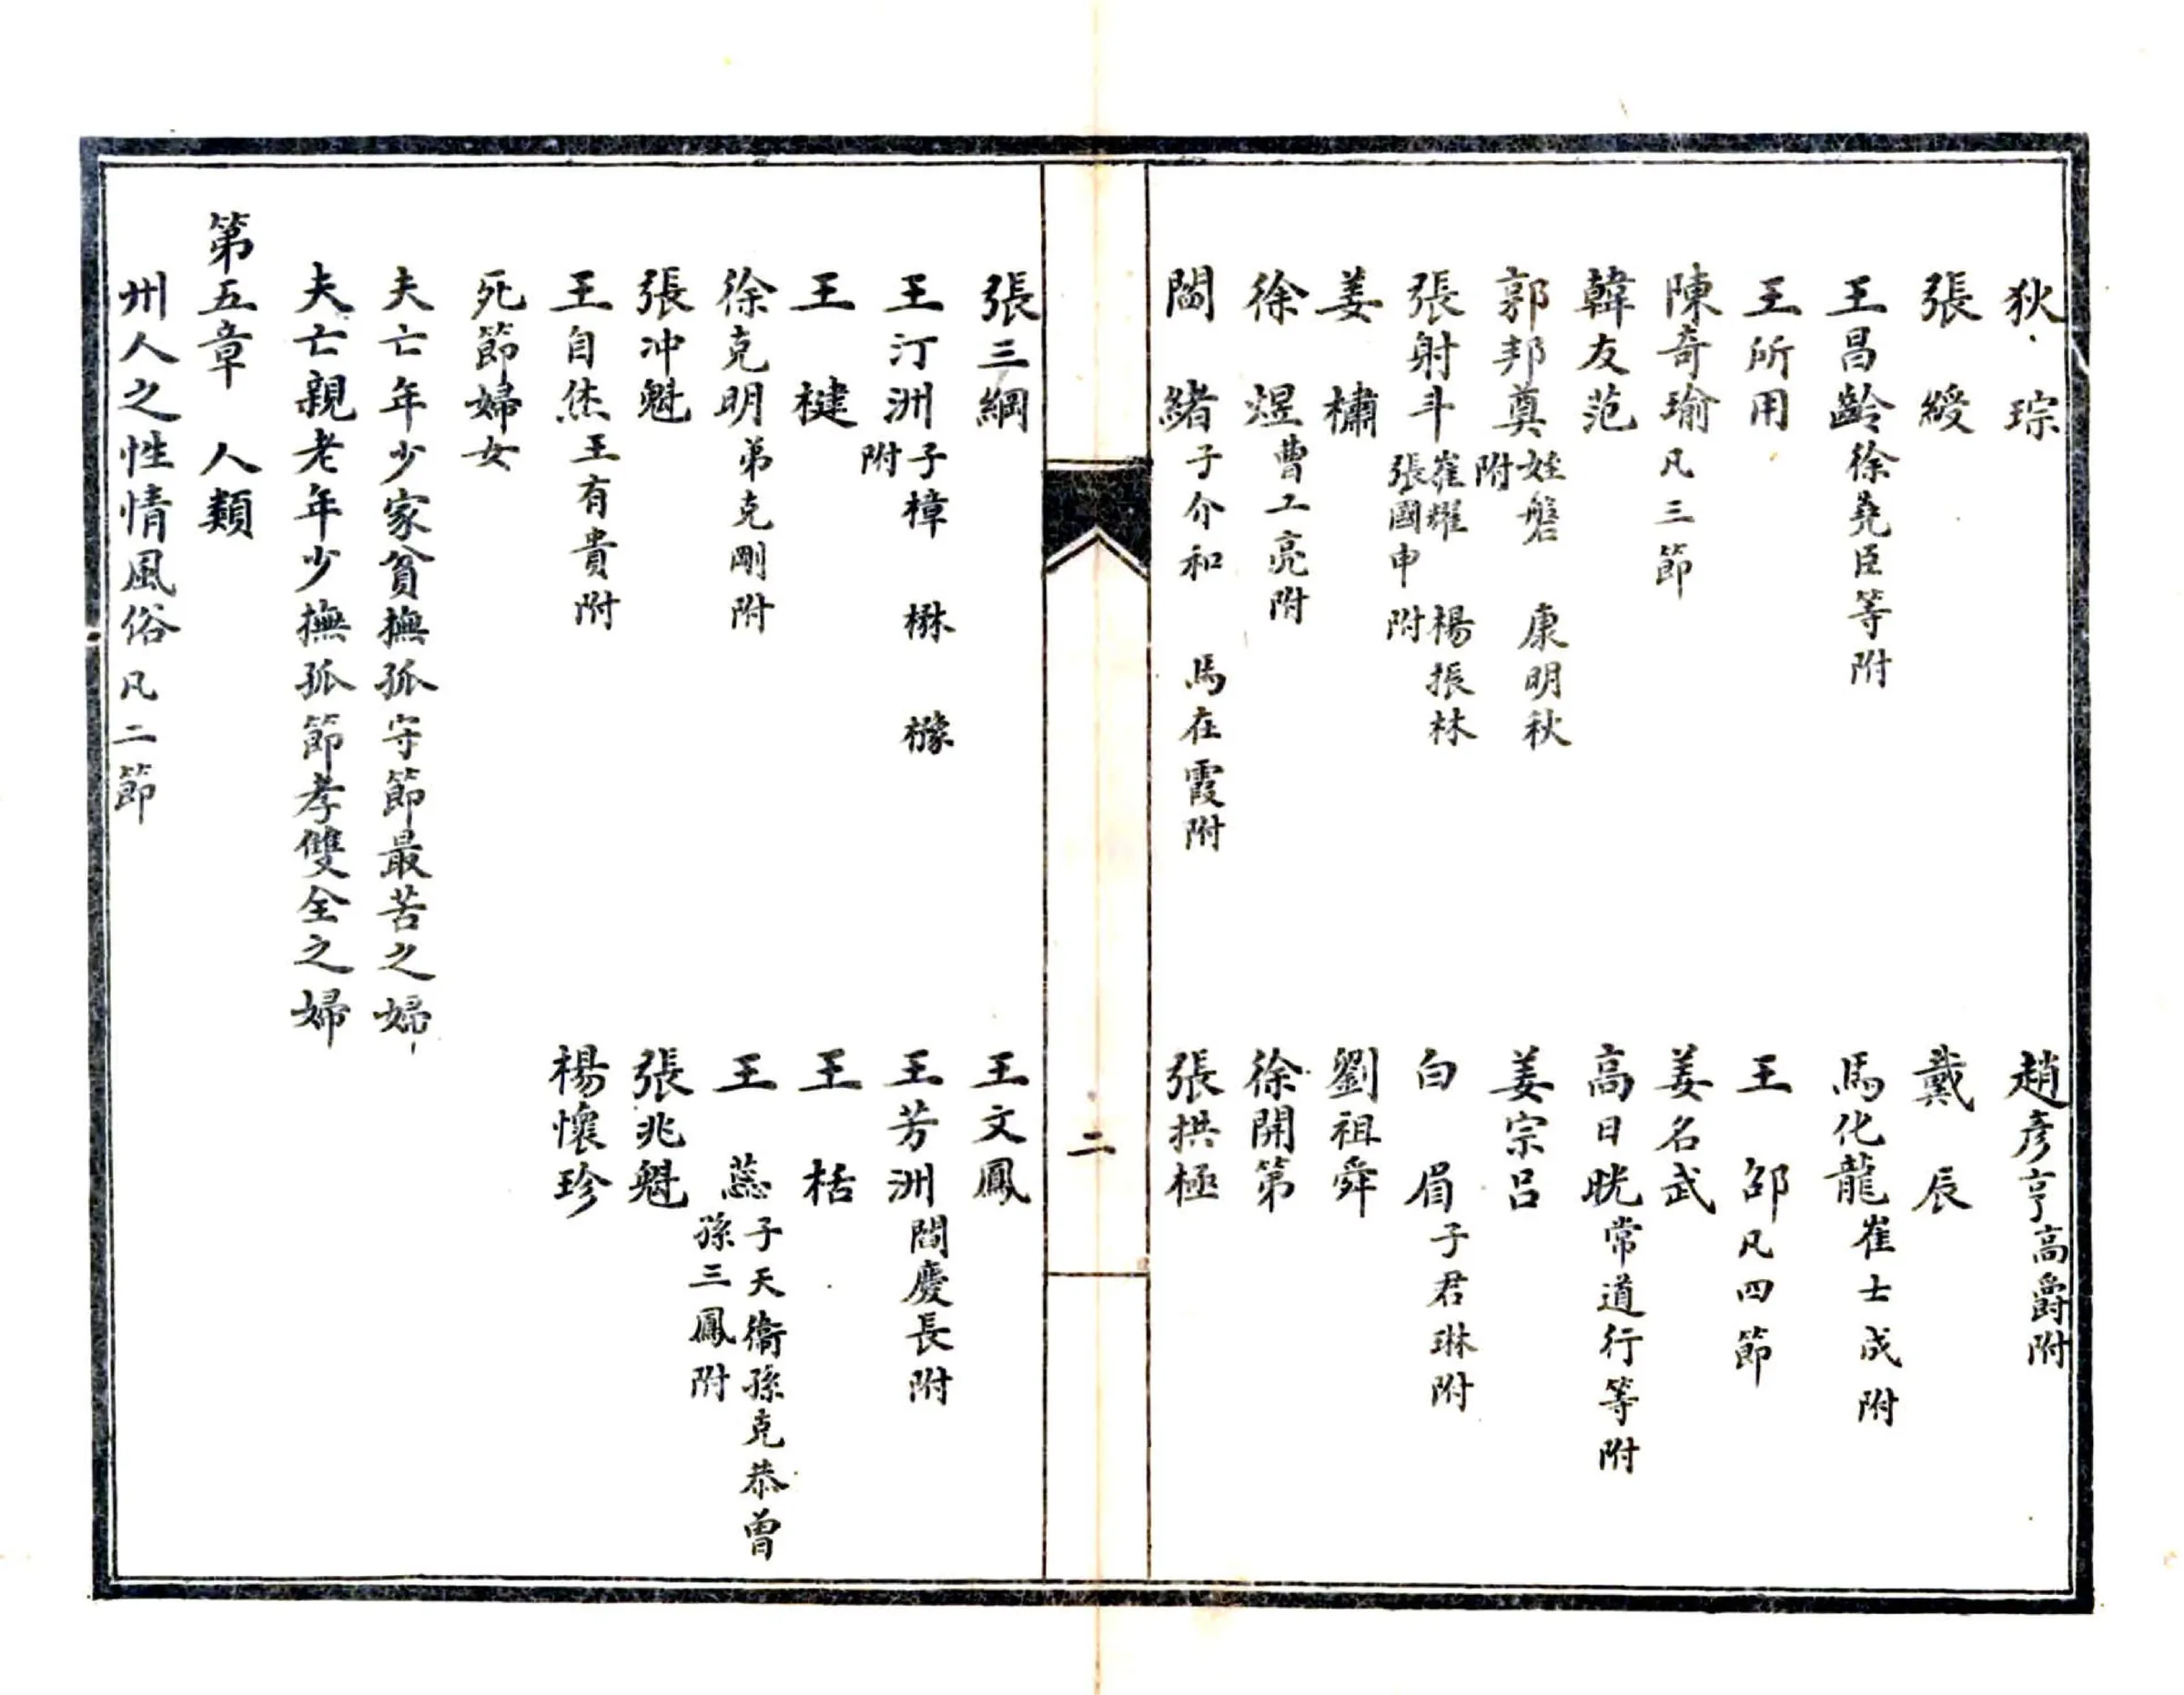 狄　琮　趙彥亨高爵附
張　綬　戴　辰
王昌齡徐堯臣等附　馬化龍崔士成附
王所用　王　邵凡四節
陳奇瑜凡三節　姜名武
韓友范　高日晄常道行等附
郭邦奠姪磐　康明秋附　姜宗呂
張射斗崔耀　楊振林張國申附　白　眉子君琳附
姜　橚　劉祖舜
徐　煜曹工亮附　徐開第
閻　緒子介和　馬在霞附　張拱極
二
張三綱　王文鳳
王汀洲子樟　楙　櫞附　王芳洲閻慶長附
王　楗　王　栝
徐克明弟克剛附　王　蕊子天衢孫克恭曾孫三鳳附
張冲魁　張兆魁
王自烋王有貴附　楊懷珍
死節婦女
夫亡年少家貧撫孤守節最苦之婦
夫亡親老年少撫孤節孝雙全之婦
第五章　人類
州人之性情風俗凡二節